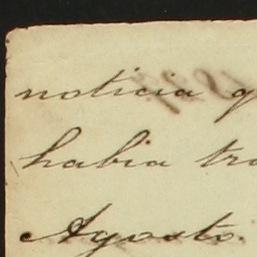 noticia
habia
Agosto.